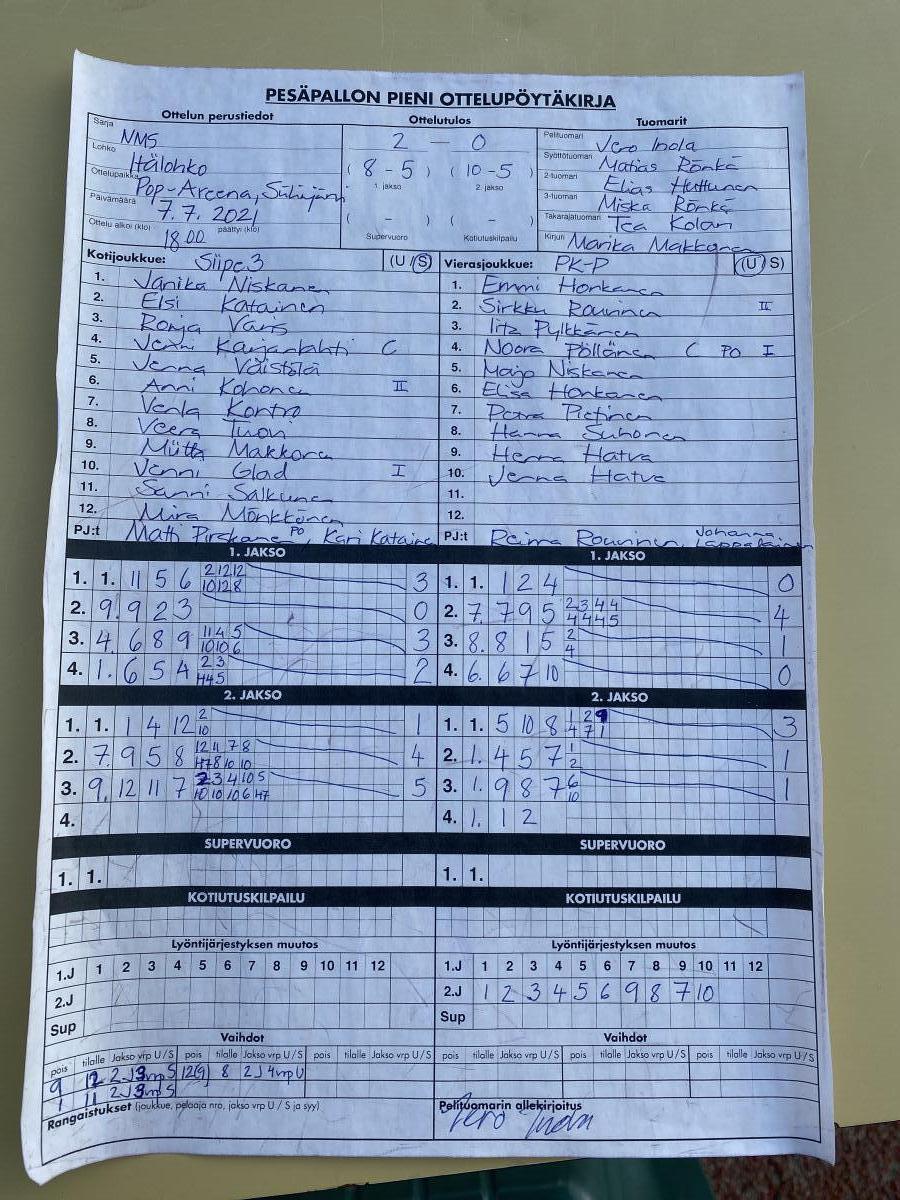 PESÄPALLON PIENI OTTELUPÖYTÄKIRJA
Ottelun perustiedot Ottelutulos Tuomarit
Sarja NMS 2 - 0 Pelituomari Vero Inola
Lohko Itälohko (8-5) (10-5) Syöttötuomari Matias Rönkä
1. jakso 2. jakso
Ottelupaikka Pop-Areena, Siilinjärvi 2-tuomari Elias Huttunen
Päivämäärä 7.7.2021 ( - ) ( - ) 3-tuomari Miska Rönkä
Takarajatuomari Tea Kolari
Ottelu alkoi (klo) 18.00 päättyi (klo) Supervuoro Kotiutuskilpailu Kirjuri Marika Makkonen
Kotijoukkue: Siipe3 (U / S) Vierasjoukkue: PK-P (U / S)
1. Janika Niskanen 1. Emmi Honkanen
2. Elsi Katainen 2. Sirkku Rouvinen II
3. Ronja Väns 3. Iita Pylkkänen
4. Jenni Karjanlahti C 4. Noora Pöllänen C PO I
5. Jenna Väistölä 5. Maijo Niskanen
6. Anni Kohonen II 6. Elisa Honkanen
7. Venla Kontro 7. Petra Pietinen
8. Veera Tuovi 8. Hanna Suhonen
9. Miitta Makkonen 9. Henna Hatva
10. Jenni Glad I 10. Jenna Hatva
11. Sanni Salkunen 11.
12. Mira Mönkkönen 12.
PJ:t Matti Pirskanen PO, Kari Katainen PJ:t Reima Rouvinen, Johanna Lappalainen
1. JAKSO 1. JAKSO
1. 1. 11 5 6 2 12 12 3 1. 1. 1 2 4 0
10 12 8
2. 9. 9 2 3 0 2. 7. 7 9 5 2 3 4 4 4
4 4 4 5
3. 4. 6 8 9 11 4 5 3 3. 8. 8 1 5 2 1
10 10 6 4
4. 1. 6 5 4 2 3 2 4. 6. 6 7 10 0
H4 5
2. JAKSO 2. JAKSO
1. 1. 1 4 12 2 1 1. 1. 5 10 8 1 2 9 3
10 4 7 1
2. 7. 9 5 8 12 11 7 8 4 2. 1. 4 5 7 1 1
H7 8 10 10 2
3. 9. 12 11 7 2 3 4 10 5 5 3. 1. 9 8 7 6 1
10 10 10 6 H7 10
4. 4. 1. 1 2
SUPERVUORO SUPERVUORO
1. 1. 1. 1.
KOTIUTUSKILPAILU KOTIUTUSKILPAILU
Lyöntijärjestyksen muutos Lyöntijärjestyksen muutos
1.J 1 2 3 4 5 6 7 8 9 10 11 12 1.J 1 2 3 4 5 6 7 8 9 10 11 12
2.J 2.J 1 2 3 4 5 6 9 8 7 10
Sup Sup
Vaihdot Vaihdot
pois tilalle Jakso vrp U / S pois tilalle Jakso vrp U / S pois tilalle Jakso vrp U / S pois tilalle Jakso vrp U / S pois tilalle Jakso vrp U / S pois tilalle Jakso vrp U / S
9 12 2J 3vrp S 12(9) 8 2J 4vrp U
1 11 2J 3vrp S
Rangaistukset (joukkue, pelaaja nro, jakso vrp U / S ja syy) Pelituomarin allekirjoitus